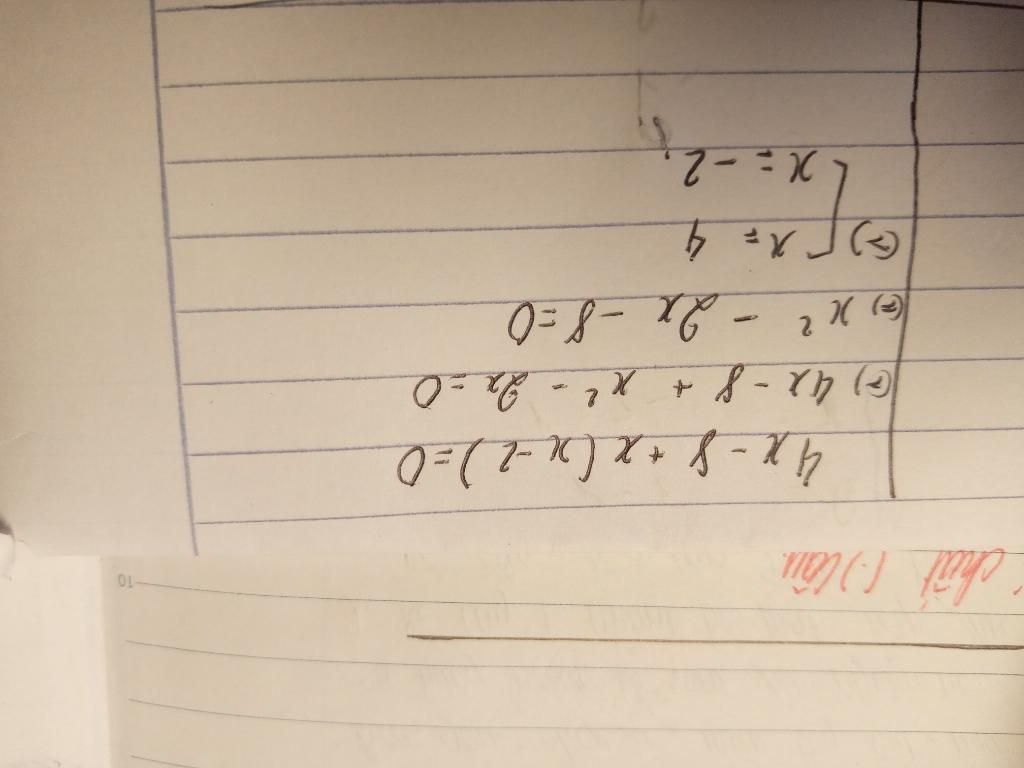 4x - 8 + x(x-2)=0
(=) 4x - 8 + x² - 2x =0
(=) x² - 2x - 8 =0
(=) [x = 4
x = -2.
chất (-) câu
10